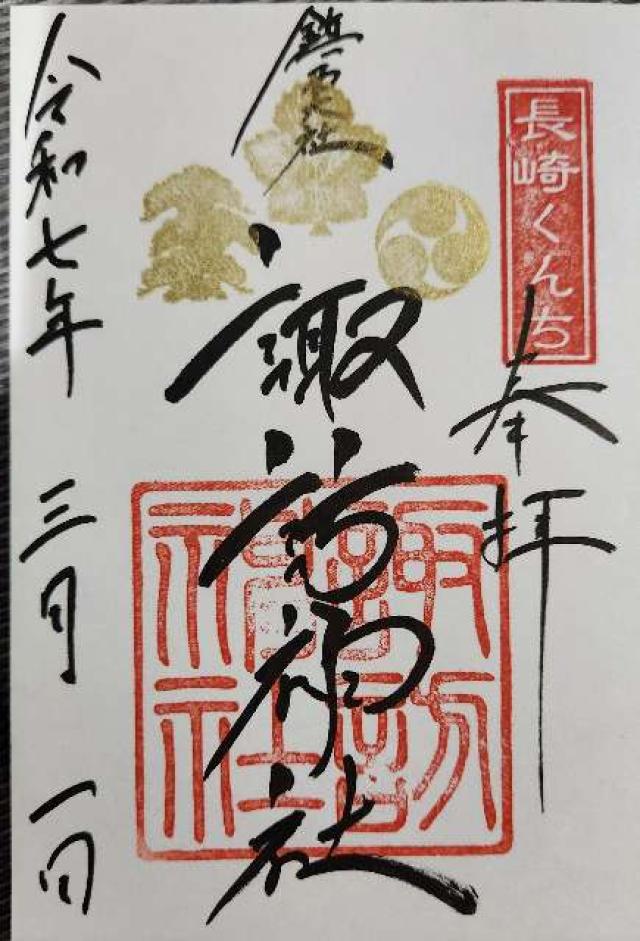 長崎くんち
奉拝
鎮西大社
諏訪神社
諏訪神社
令和七年 三月 一日